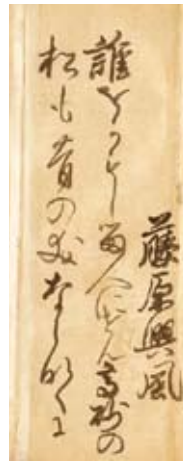 藤原興風
誰をかもしる人にせん高砂の
松も昔の友ならなくに